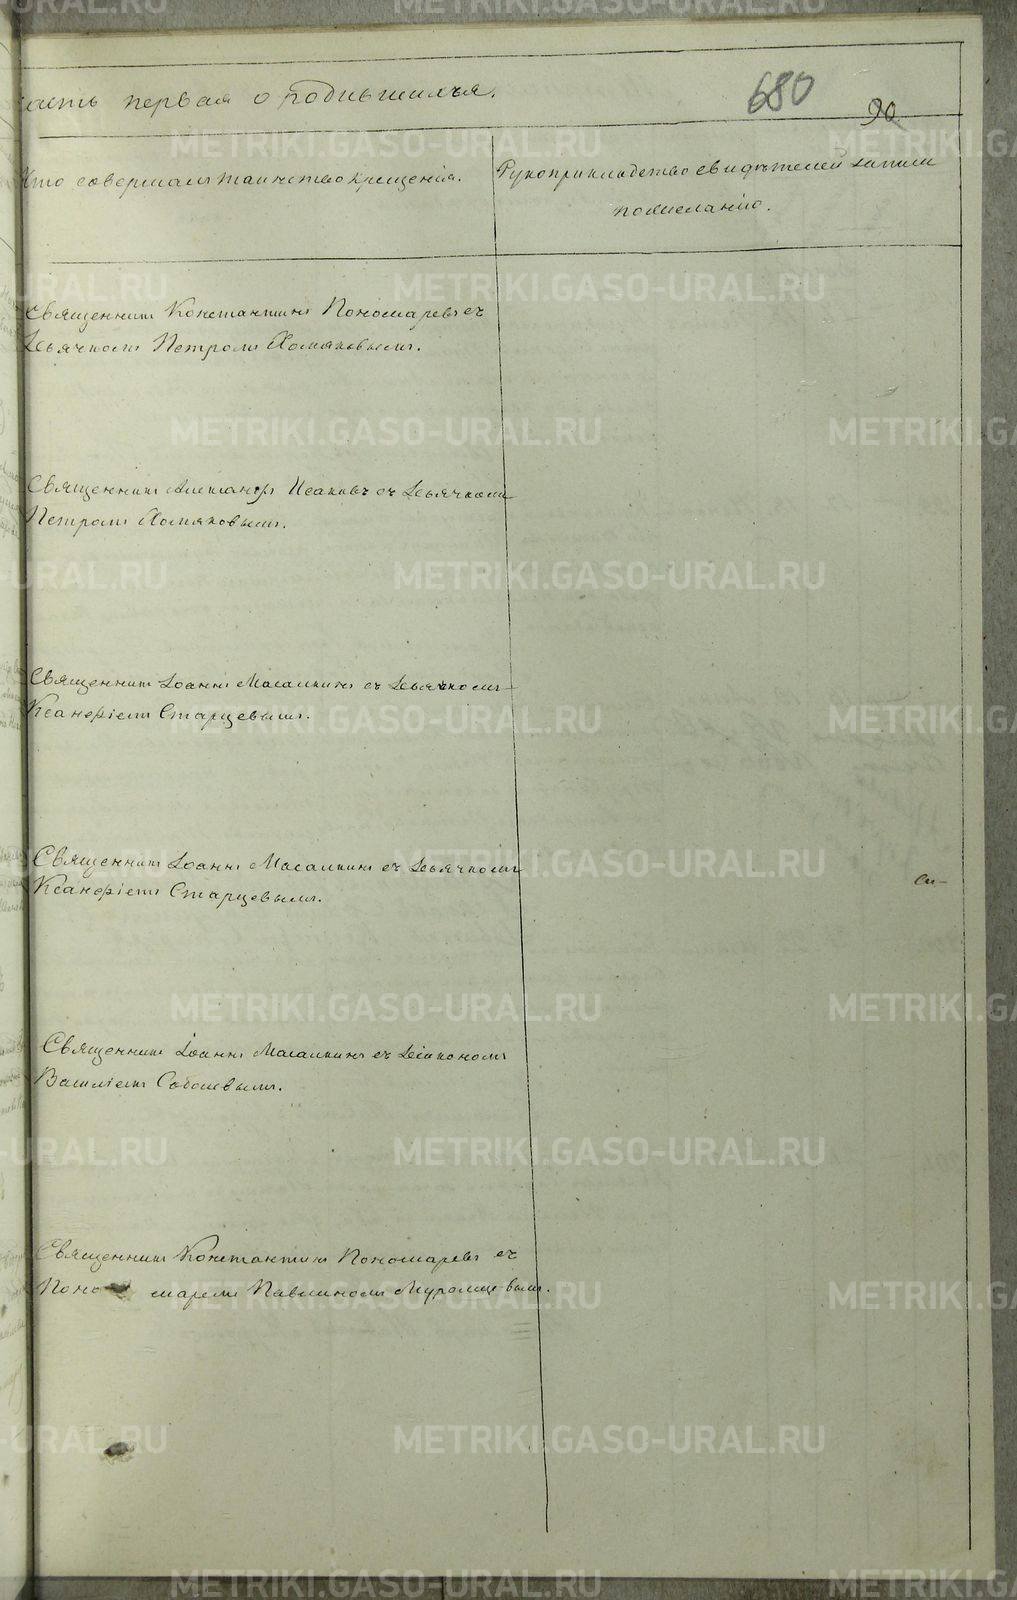 часть первая о родившихся.
680
90
Кто совершал таинство крещенія.
Рукоприкладство свидѣтелей записи
по желанію.
Священникъ Константинъ Пономаревъ съ
Дьячкомъ Петромъ Хомяковымъ.
Священникъ Александръ Исаковъ съ Дьячкомъ
Петромъ Хомяковымъ.
Священникъ Іоаннъ Масалкинъ съ Дьячкомъ
Ксанфіемъ Старцевымъ.
Священникъ Іоаннъ Масалкинъ съ Дьячкомъ
Ксанфіемъ Старцевымъ.
Священникъ Іоаннъ Масалкинъ съ Діакономъ
Василіемъ Соболевымъ.
Священникъ Константинъ Пономаревъ съ
Поно маремъ Павлиномъ Муромцевымъ.
METRIKI.GASO-URAL.RU